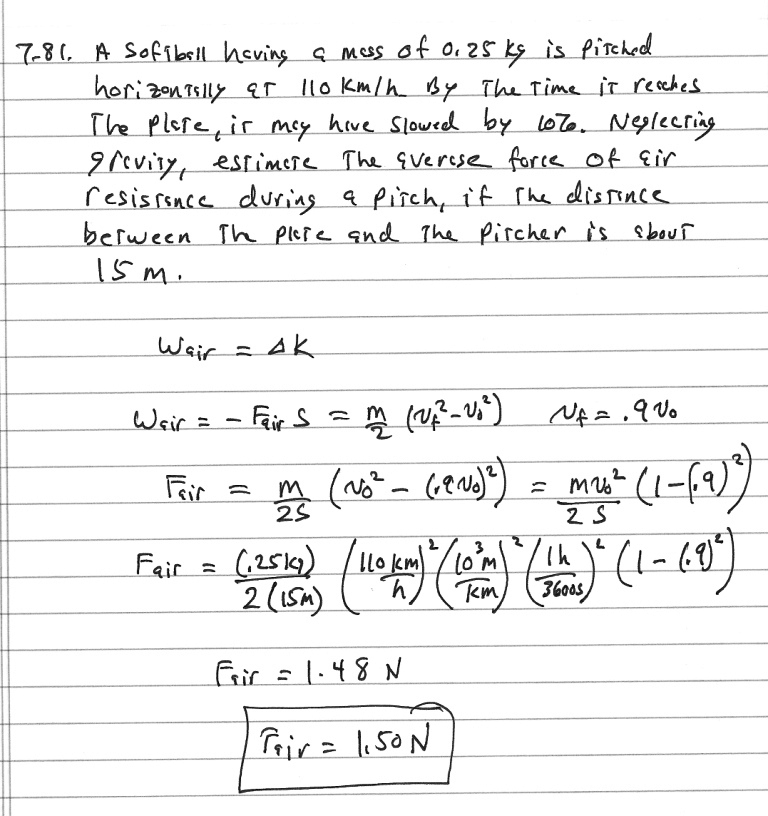 7-81. A Softball having a mass of 0.25 kg is Pitched
horizontally at 110 km/h By The Time it reaches
The Plate, it may have slowed by 10%. Neglecting
gravity, estimate The average force of air
resistance during a Pitch, if The distance
between The Plate and The Pitcher is about
15 m.
Wair = ΔK
Wair = - Fair S = m/2 (vf² - v0²) vf = .9 v0
Fair = m/2S (v0² - (.9 v0)²) = mv0²/2S (1 - (.9)²)
Fair = (.25kg)/2(15m) (110 km/h)² (10³m/km)² (1h/3600s)² (1 - (.9)²)
Fair = 1.48 N
Fair = 1.50 N